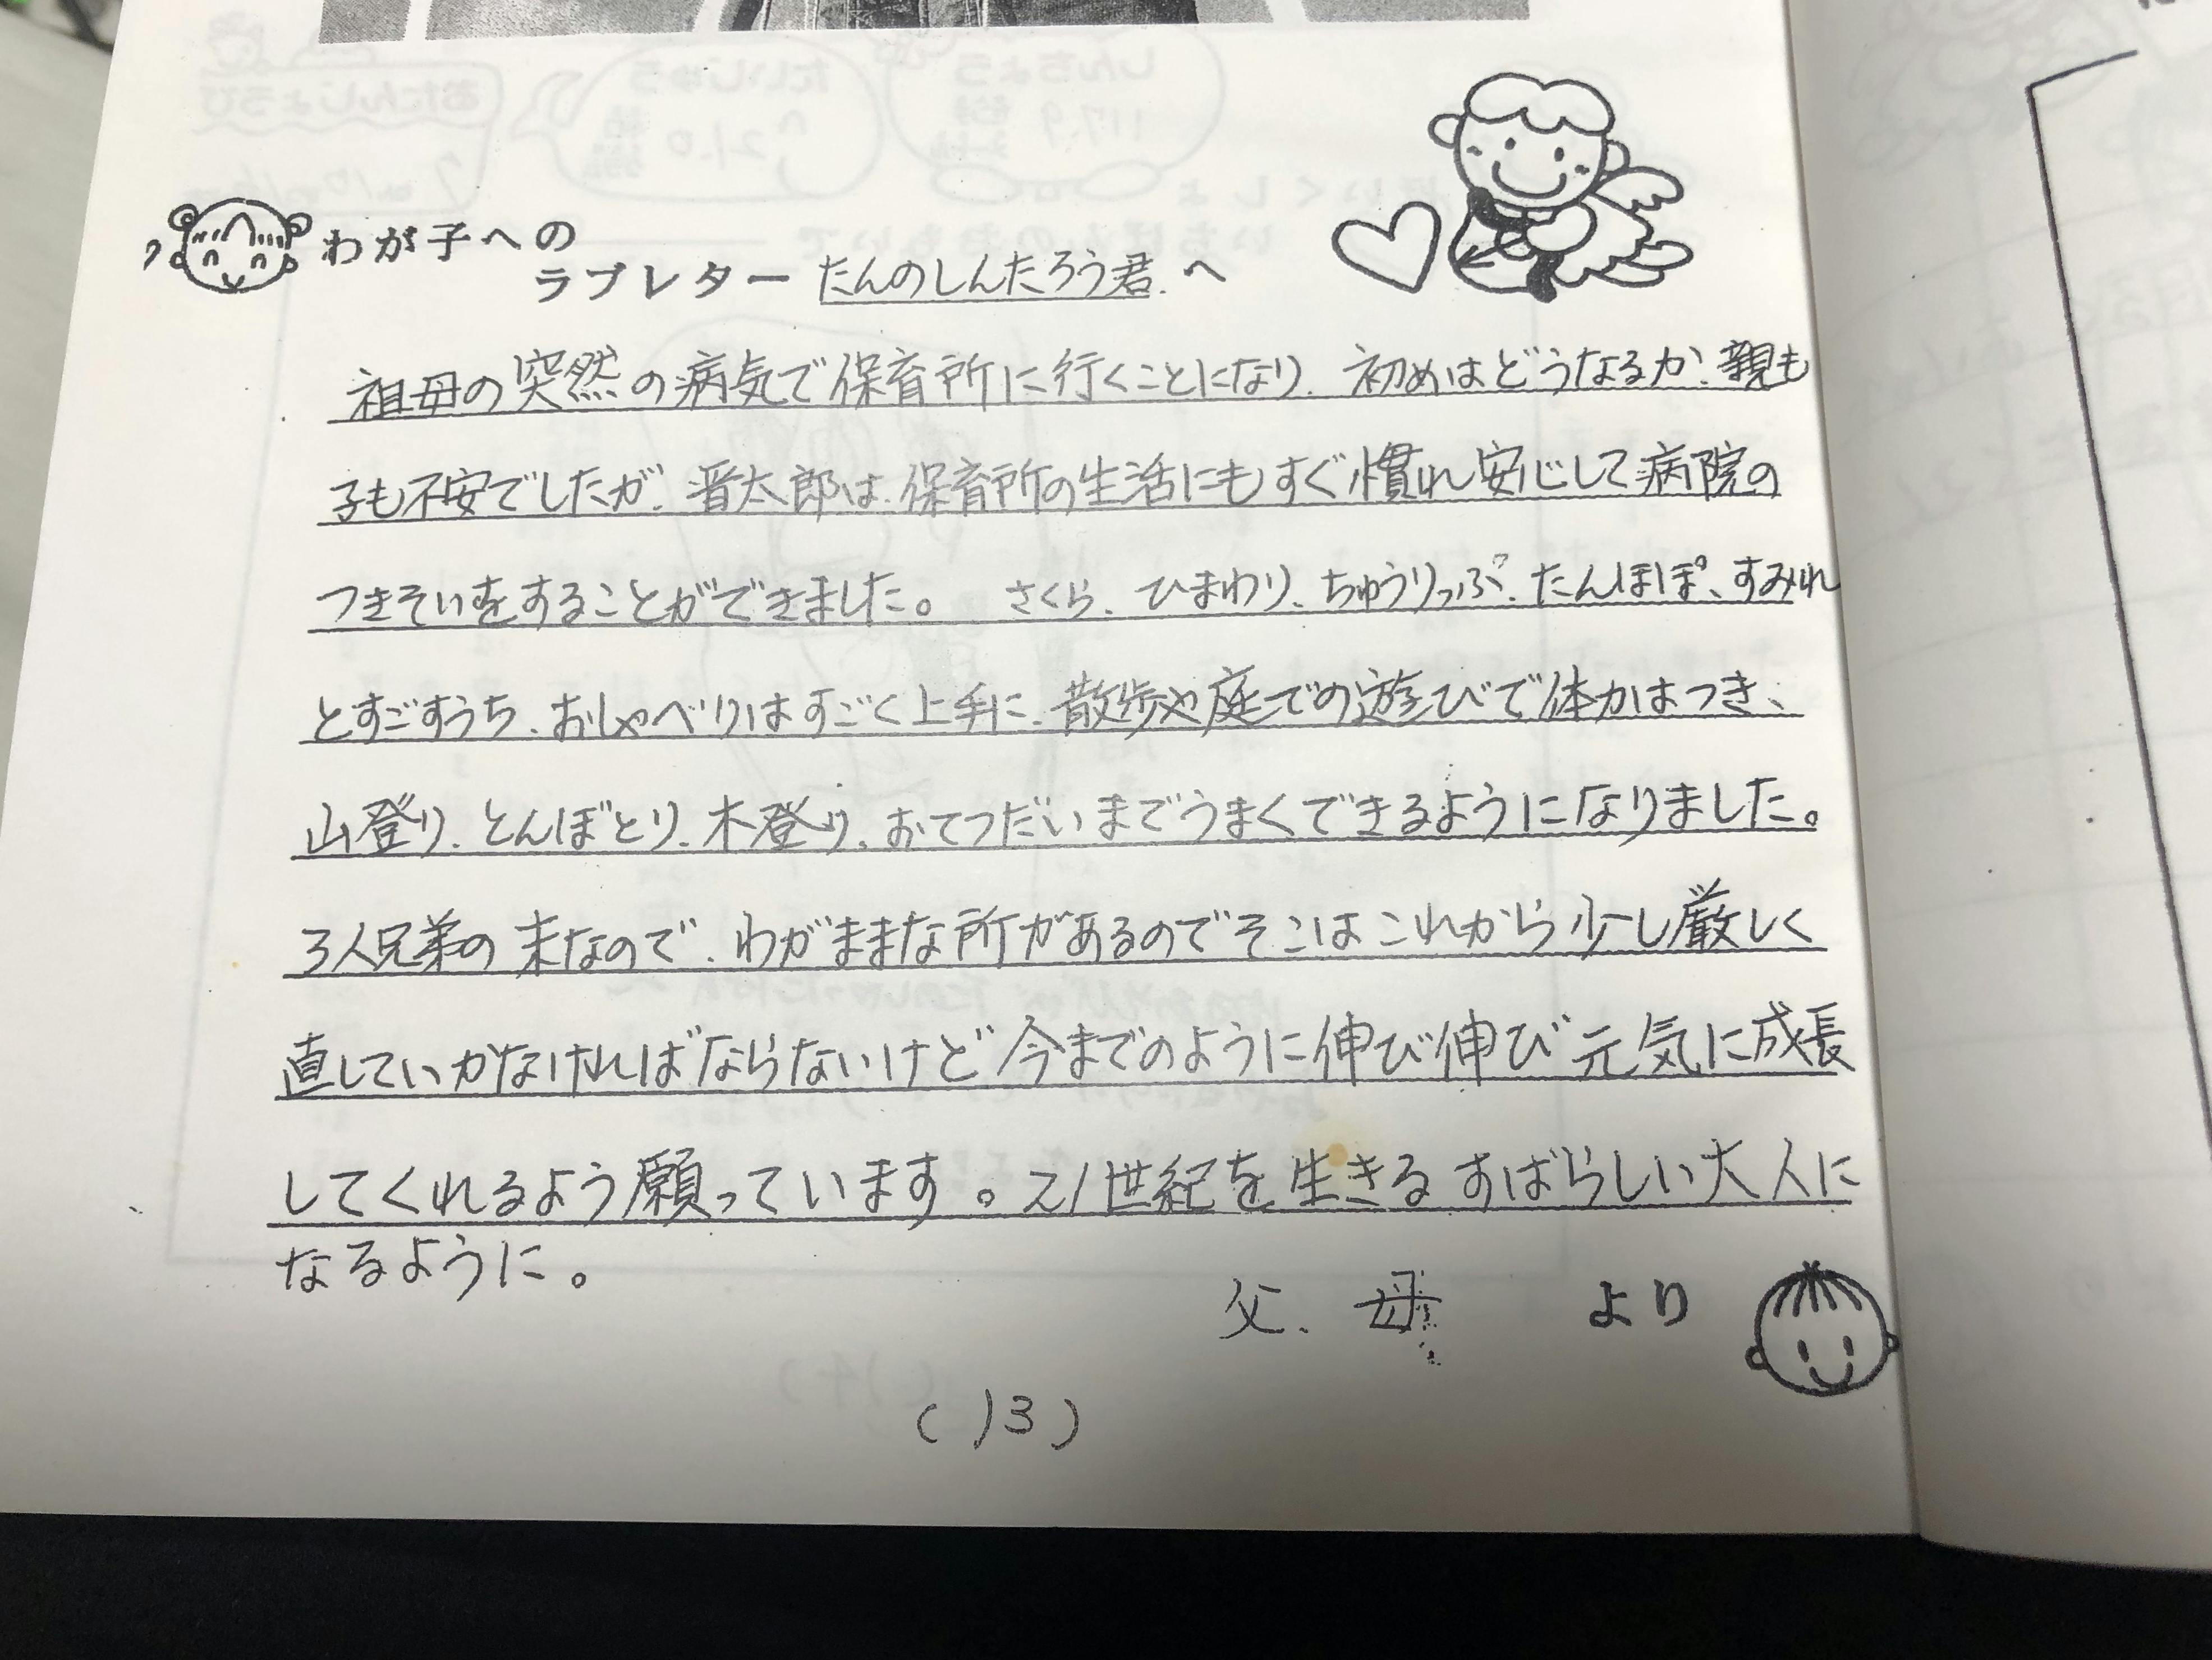 わが子への
ラブレター たんのしんたろう君.へ
祖母の突然の病気で保育所に行くことになり、初めはどうなるか、親も
子も不安でしたが、晋太郎は、保育所の生活にもすぐ慣れ安心して病院の
つきそいをすることができました。 さくら、ひまわり、ちゅうりっぷ、たんほぽ、すみれ
とすごすうち、おしゃべりはすごく上手に、散歩や庭での遊びで体力はつき、
山登り、とんぼとり、木登り、おてつだいまでうまくできるようになりました。
3人兄弟の末なので、わがままな所があるのでそこはこれから少し厳しく
直していかなければならないけど今までのように伸び伸び元気に成長
してくれるよう願っています。21世紀を生きるすばらしい大人に
なるように。
父、母 より
(13)